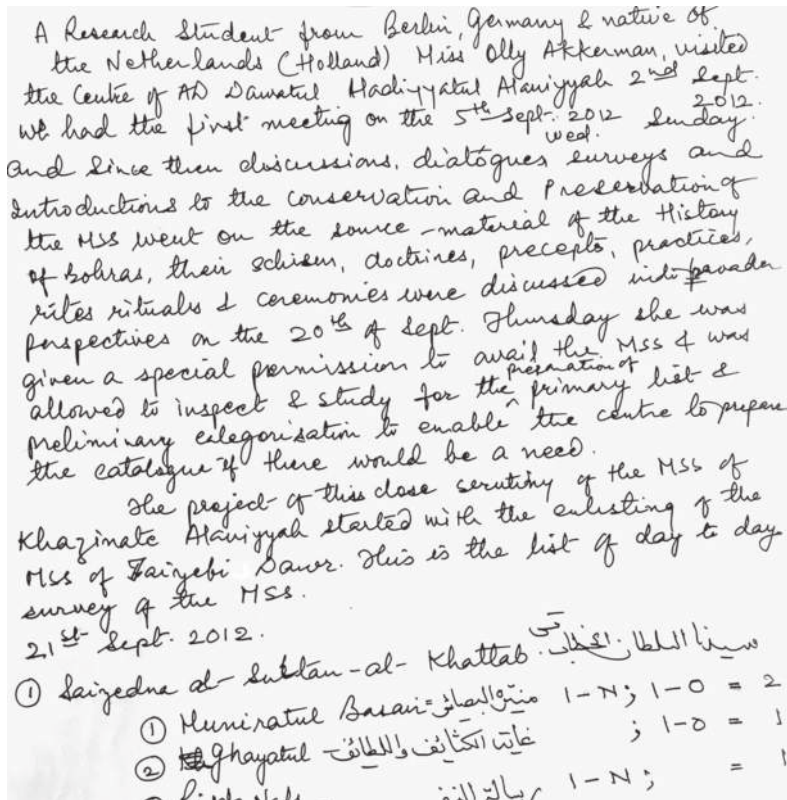 A Research Student from Berlin, Germany & native of
the Netherlands (Holland) Miss Olly Akkerman, visited
the Centre of AD Dawatul Hadiyyatul Alaviyyah 2nd Sept.
2012.
We had the first meeting on the 5th Sept. 2012 Sunday.
wed.
and Since then discussions, dialogues surveys and
Introductions to the conservation and Preservation of
the MSS went on the source-material of the History
of Bohras, their schism, doctrines, precepts, practices,
rites rituals & ceremonies were discussed
perspectives on the 20th of Sept. Thursday she was
given a special permission to avail the MSS & was
preparation of
allowed to inspect & study for the ^ primary list &
preliminary categorisation to enable the centre to prepare
the catalogue if there would be a need.
The project of this close scrutiny of the MSS of
Khazinate Alaviyyah started with the enlisting of the
MSS of Taiyebi Dawr. This is the list of day to day
survey of the MSS.
21st Sept. 2012.
① Saiyedna al-Sultan-al-Khattab سيدنا السلطان الخطاب
① Muniratul Basair = منيرة البصائر 1-N; 1-0 = 2
② Ghayatul - غاية الكثائف واللطائف ; 1-0 = 1
1-N; = 1